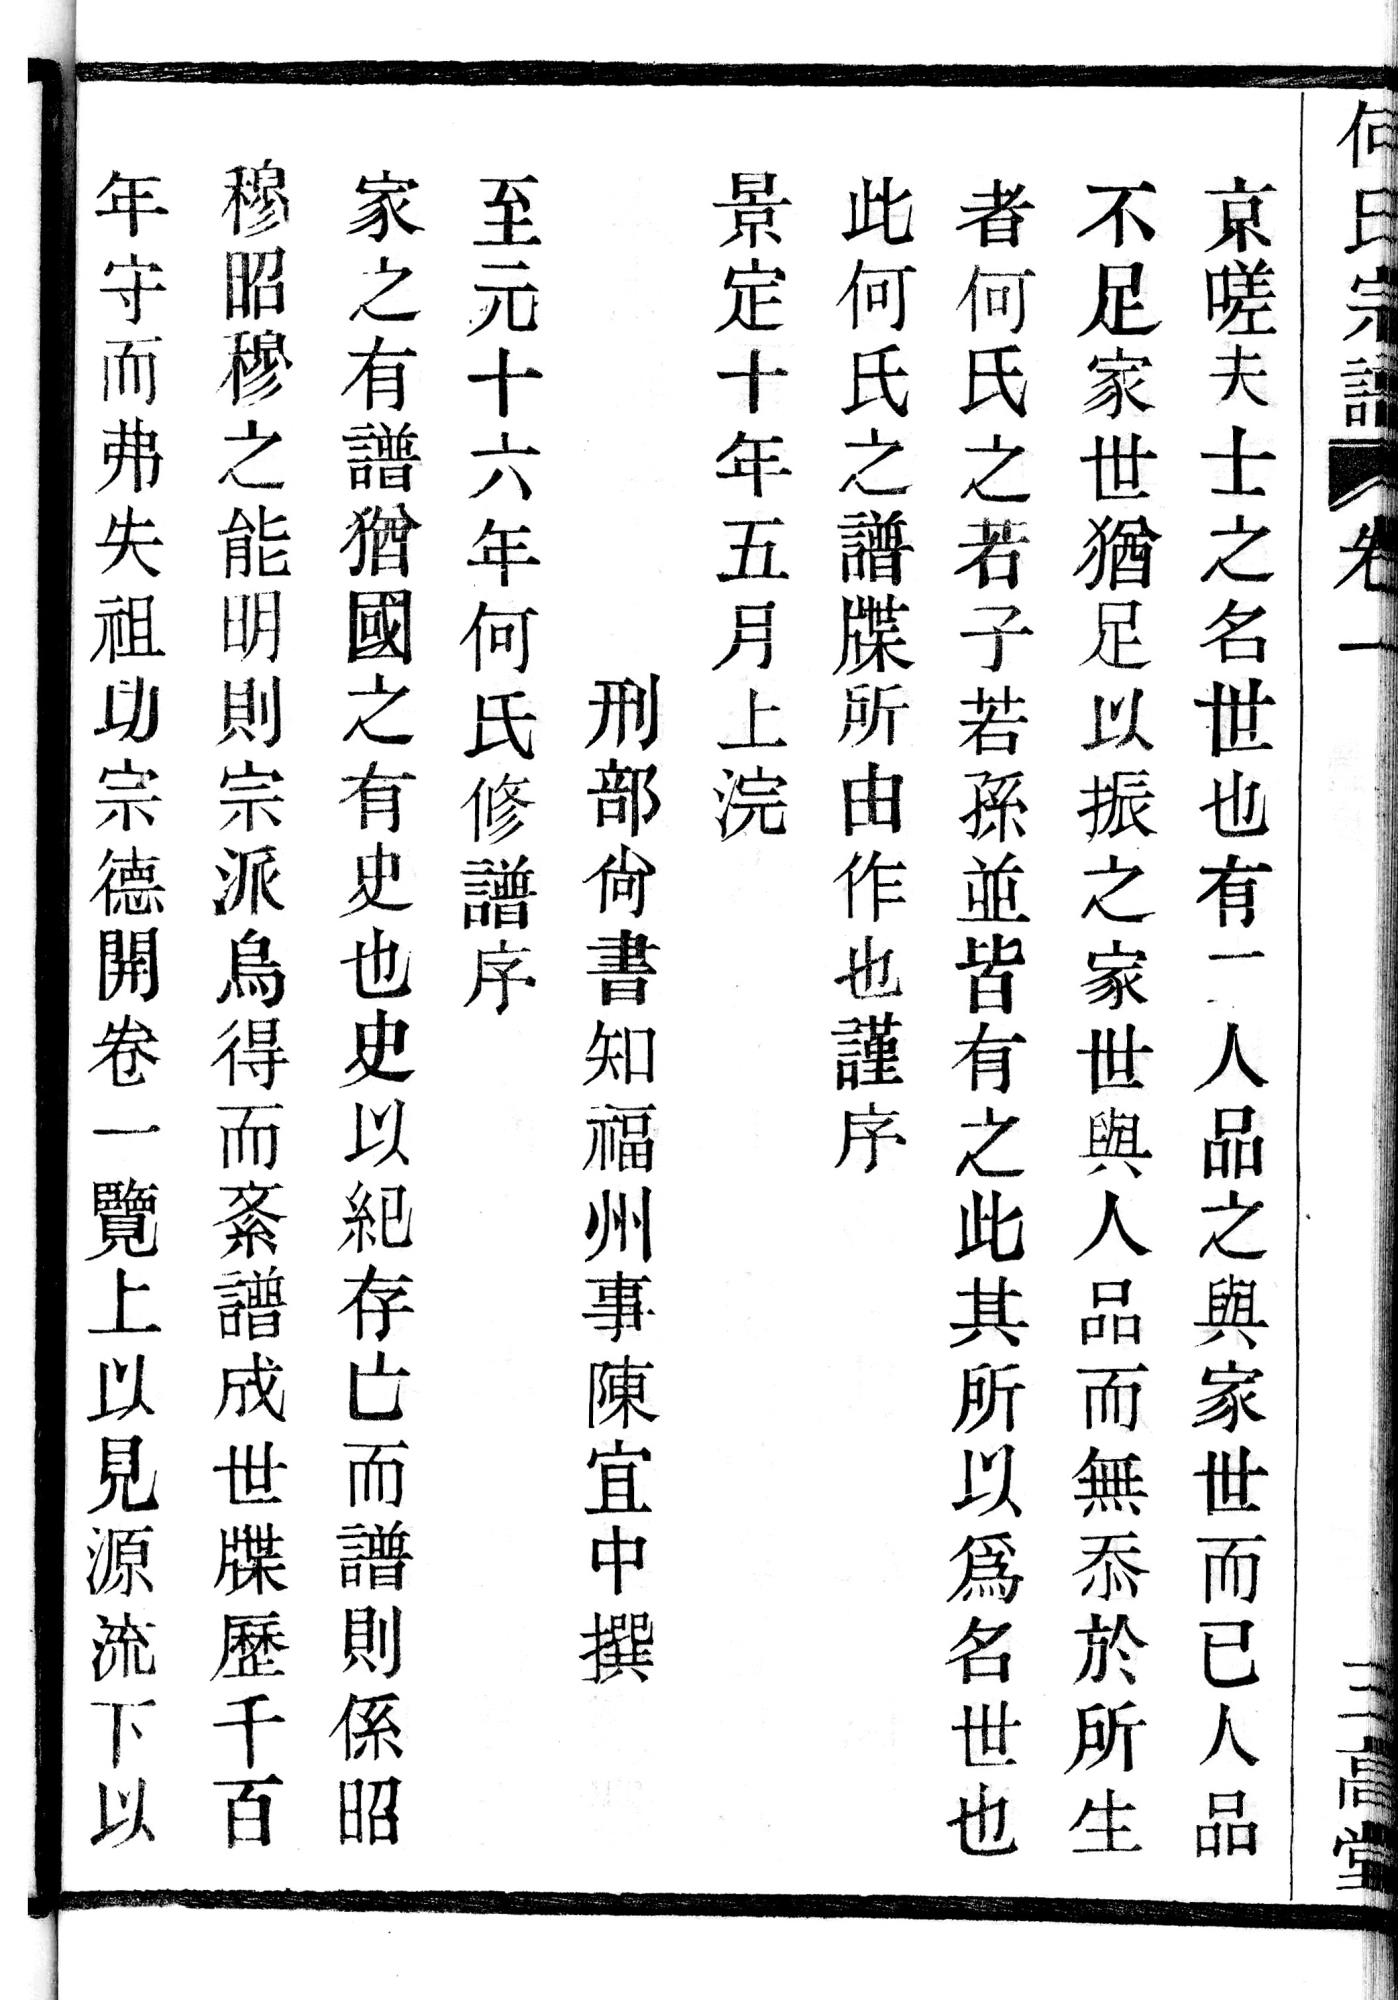 何氏宗譜 卷一 三高堂
京嗟夫士之名世也有一人品之與家世而已人品
不足家世猶足以振之家世與人品而無忝於所生
者何氏之若子若孫並皆有之此其所以爲名世也
此何氏之譜牒所由作也謹序
景定十年五月上浣
刑部尙書知福州事陳宜中撰
至元十六年何氏修譜序
家之有譜猶國之有史也史以紀存亡而譜則係昭
穆昭穆之能明則宗派烏得而紊譜成世牒歷千百
年守而弗失祖功宗德開卷一覽上以見源流下以